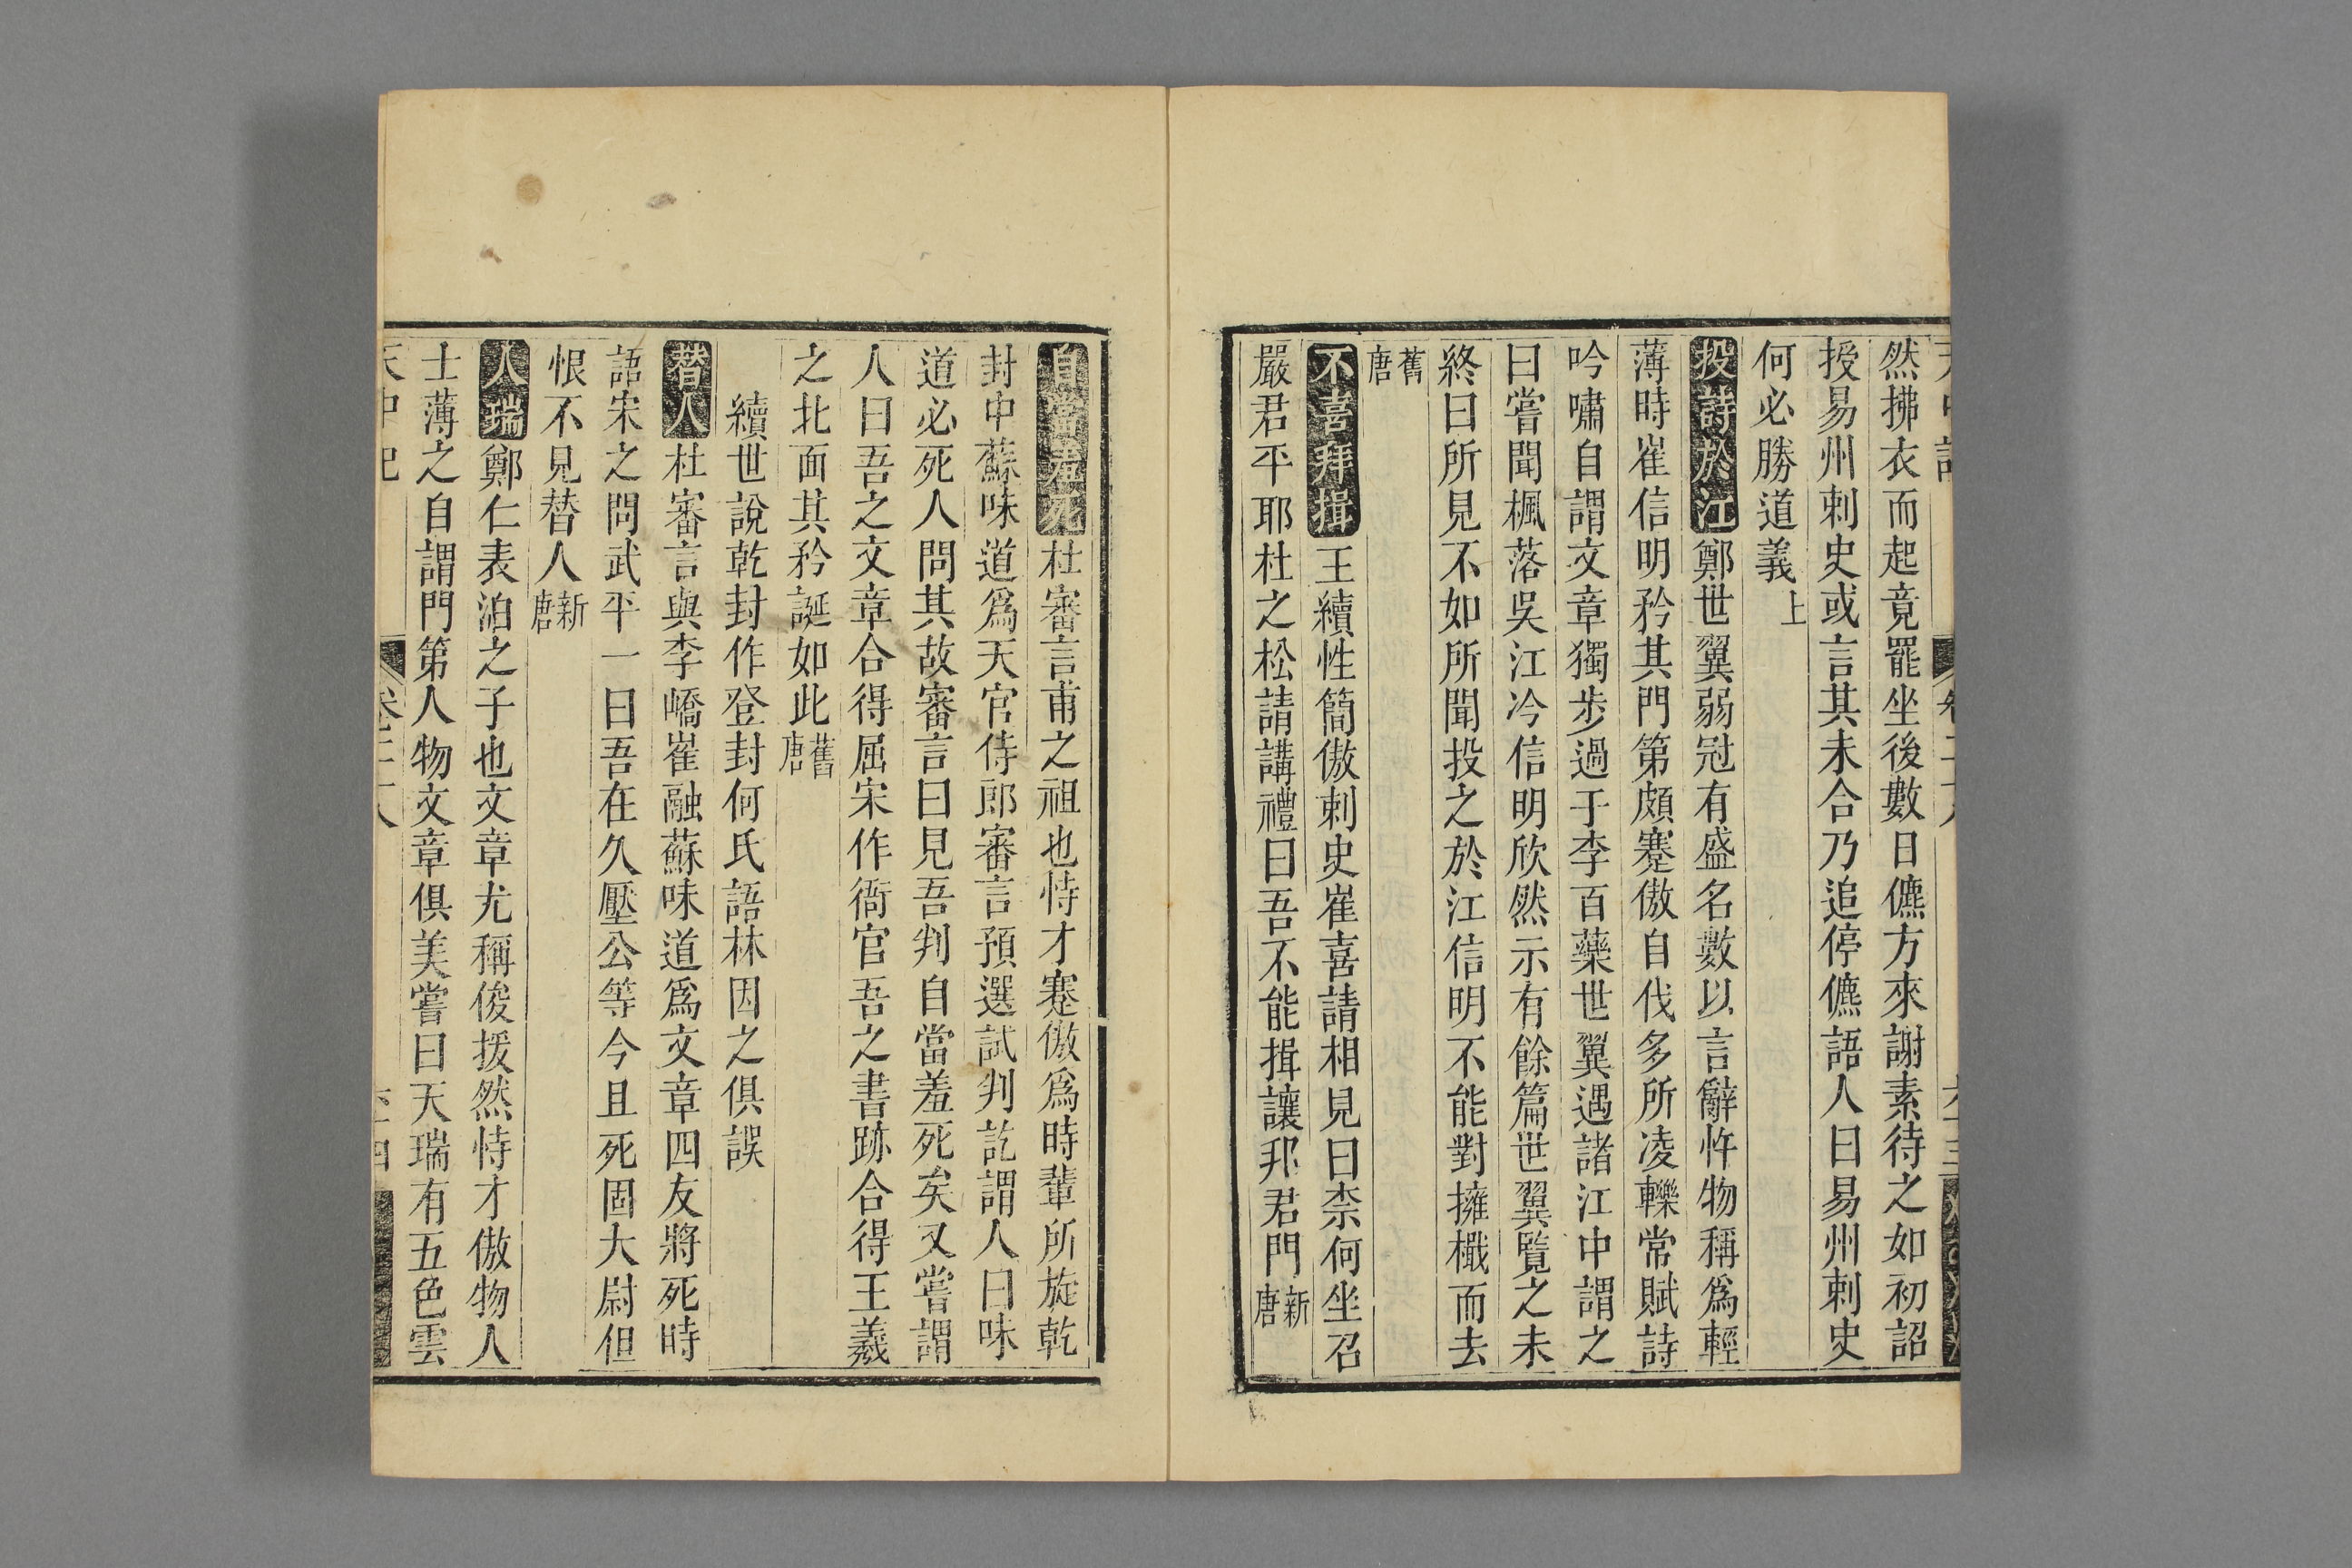 然拂衣而起竟罷坐後數日儦方來謝素待之如初詔
授易州刺史或言其未合乃追停儦語人曰易州刺史
何必勝道義上
投詩於江鄭世翼弱冠有盛名數以言辭忤物稱爲輕
薄時崔信明矜其門第頗蹇傲自伐多所凌轢常賦詩
吟嘯自謂文章獨步過于李百藥世翼遇諸江中謂之
曰嘗聞楓落吳江冷信明欣然示有餘篇世翼覽之未
終曰所見不如所聞投之於江信明不能對擁檝而去
舊唐
不喜拜揖王績性簡傲刺史崔喜請相見曰柰何坐召
嚴君平耶杜之松請講禮曰吾不能揖讓邦君門新唐
自當羞死杜審言甫之祖也恃才蹇傲爲時輩所旋乾
封中蘇味道爲天官侍郎審言預選試判訖謂人曰味
道必死人問其故審言曰見吾判自當羞死矣又嘗謂
人曰吾之文章合得屈宋作衙官吾之書跡合得王羲
之北面其矜誕如此舊唐
續世說乾封作登封何氏語林因之俱誤
替人杜審言與李嶠崔融蘇味道爲文章四友將死時
語宋之問武平一曰吾在久壓公等今且死固大尉但
恨不見替人新唐
人瑞鄭仁表洎之子也文章尤稱俊援然恃才傲物人
士薄之自謂門第人物文章俱美嘗曰天瑞有五色雲